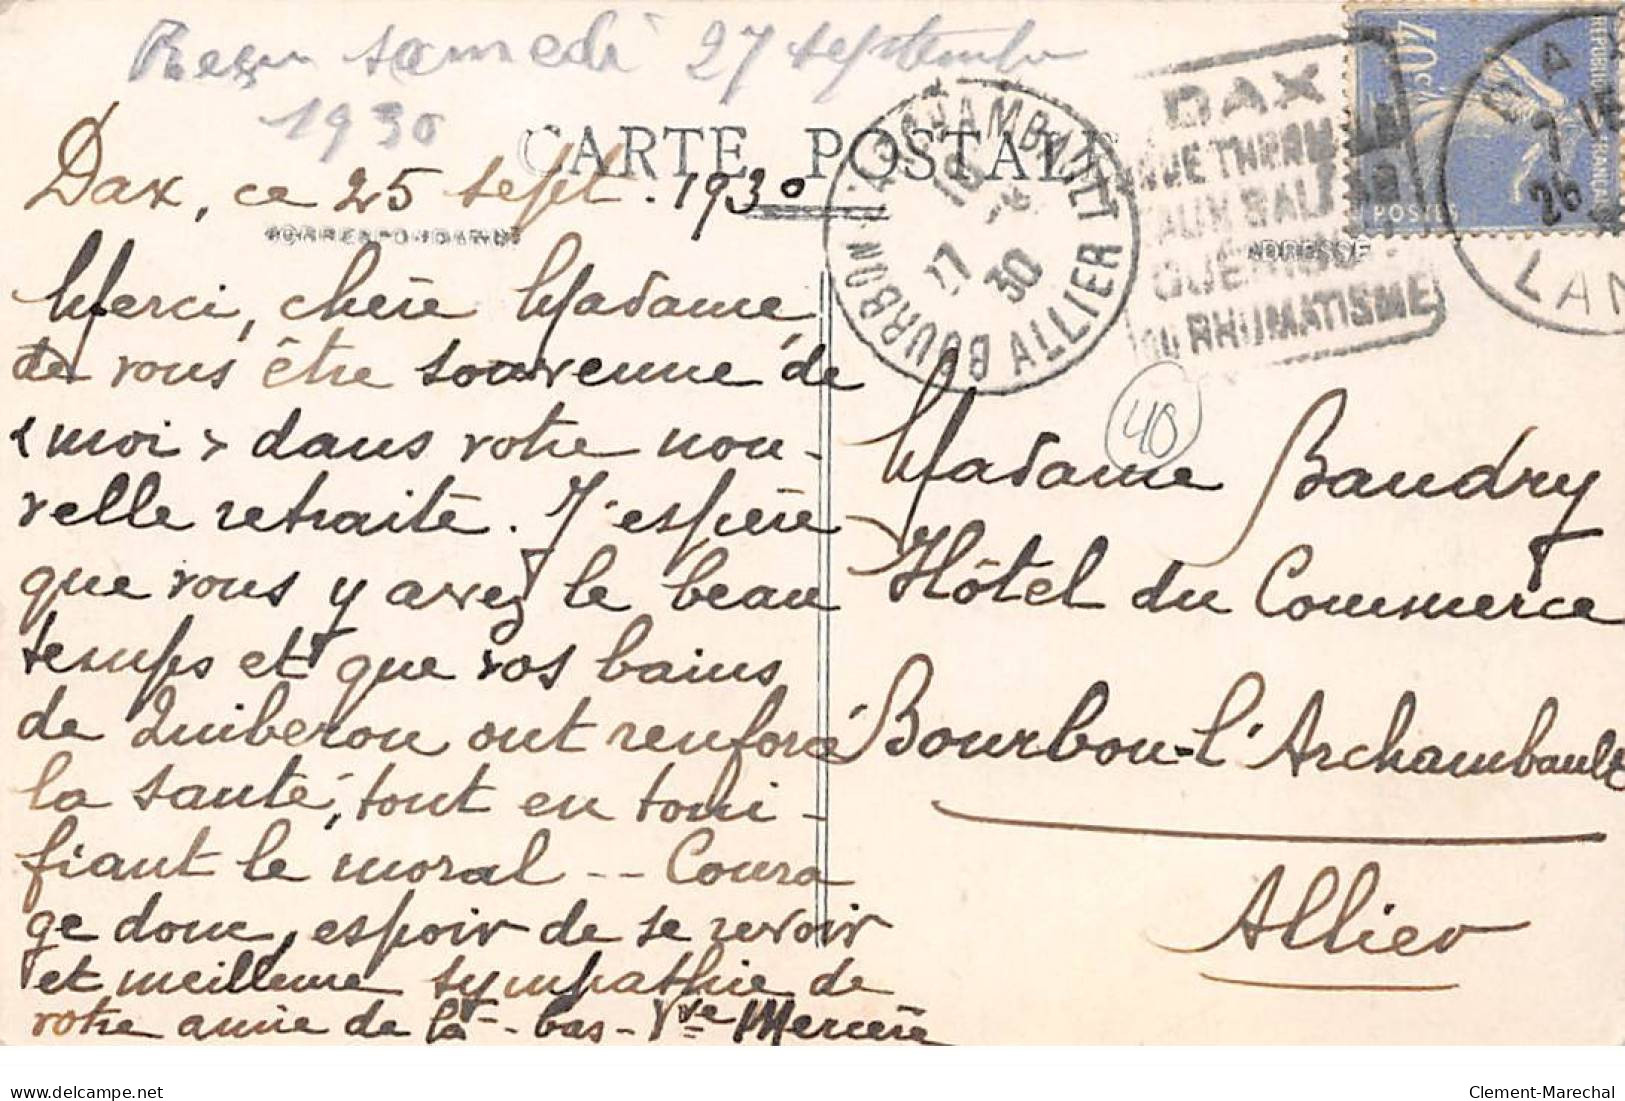 Reçu samedi 27 septembre
1930
CARTE POSTALE
Dax, ce 25 sept. 1930
CORRESPONDANCE
Merci, chère Madame,
de vous être souvenue de
< moi > dans votre nou-
velle retraite. J'espère
que vous y avez le beau
temps et que vos bains
de Quiberon ont renforcé
la santé, tout en toni-
fiant le moral -- Coura
ge donc, espoir de se revoir
et meilleure sympathie de
votre amie de là-bas - Vve Mercère
BOURBON-L'ARCHAMBAULT
ALLIER
30
DAX
AUX SAL
GUÉRIT
DU RHUMATISME
40c
POSTES
ADRESSE
DAX
26
LAN
40
Madame Baudry
Hôtel du Commerce
Bourbon-l'Archambault
Allier
delcampe.net
Clement-Marechal